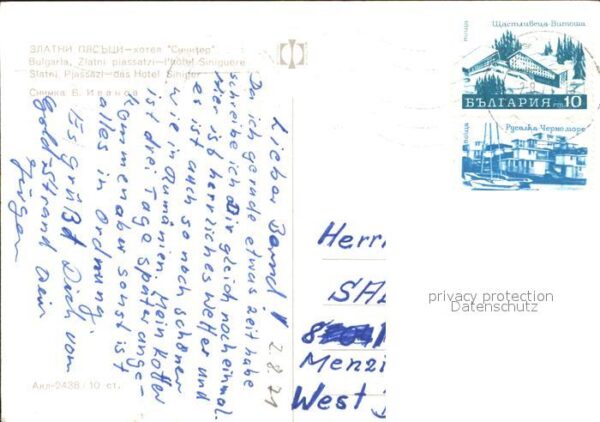 ЗЛАТНИ ПЯСЪЦИ—хотел "Синигер"
Bulgaria, Zlatni piassatzi—l'hôtel Siniguere
Slatni, Pjassazi—das Hotel Siniger
Снимка Б. Иванов
Lieber Bernd! 2.8.71
Da ich gerade etwas Zeit habe
schreibe ich Dir gleich noch einmal.
Hier ist herrliches Wetter und
es ist auch so noch schöner
wie in Rumänien. Mein Koffer
ist drei Tage später ange-
kommen aber sonst ist
alles in Ordnung.
Es grüßt Dich vom
Gold-Strand Dein
Jürgen
Акл-2438/10 ст.
поща
Щастливеца-Витоша
БЪЛГАРИЯ ст 10
поща
Русалка Черноморе
Herrn
SAL
Menzi
West
privacy protection
Datenschutz